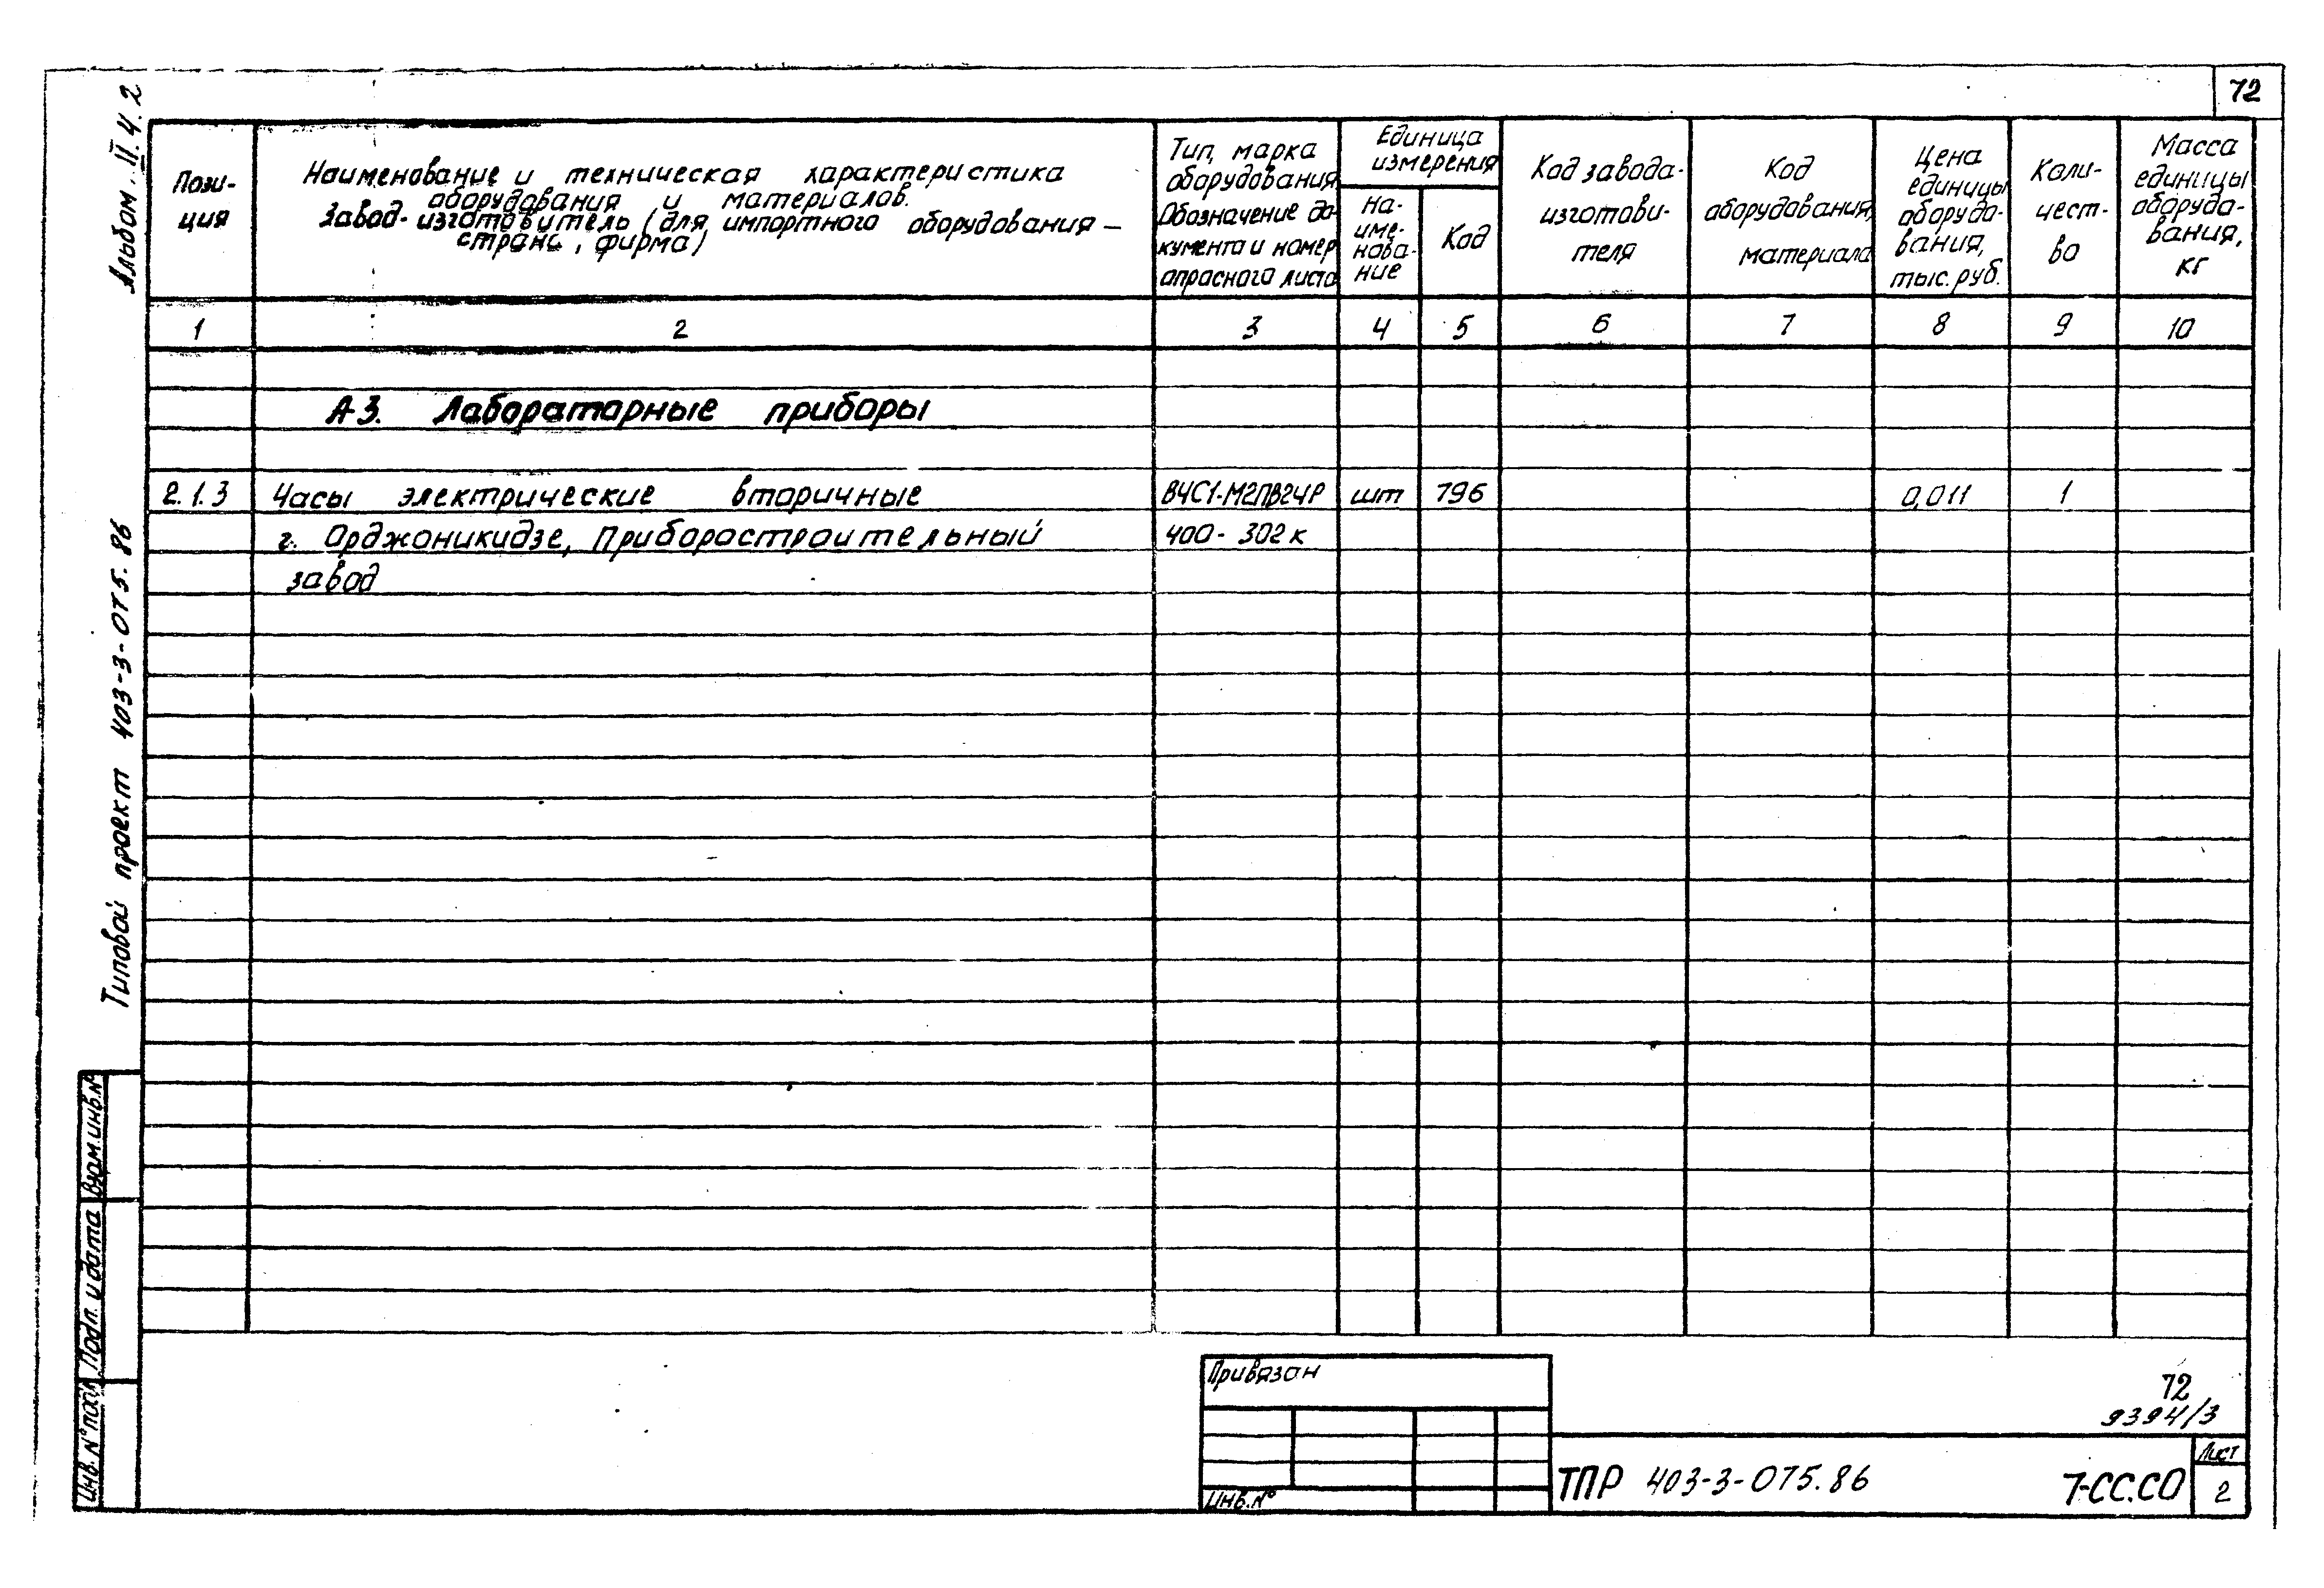 72
Альбом. II. 4. 2
Типовой проект 403-3-075.86
Пози-
ция
Наименование и техническая характеристика
оборудования и материалов.
Завод-изготовитель (для импортного оборудования —
страна, фирма)
Тип, марка
оборудования.
Обозначение до-
кумента и номер
опросного листа
Единица
измерения
На-
име-
нова-
ние
Код
Код завода-
изготови-
теля
Код
оборудования,
материала
Цена
единицы
оборудо-
вания,
тыс. руб.
Коли-
чест-
во
Масса
единицы
оборудо-
вания,
кг
1 2 3 4 5 6 7 8 9 10
А3. Лабораторные приборы
2.1.3 Часы электрические вторичные ВЧС1-М2ПВ24Р шт 796 0,011 1
г. Орджоникидзе, Приборостроительный 400-302к
завод
Взам.инв.№
Подп. и дата
Инв.№ подл
Привязан
Инв.№
72
9394/3
ТПР 403-3-075.86 7-СС.СО
Лист
2